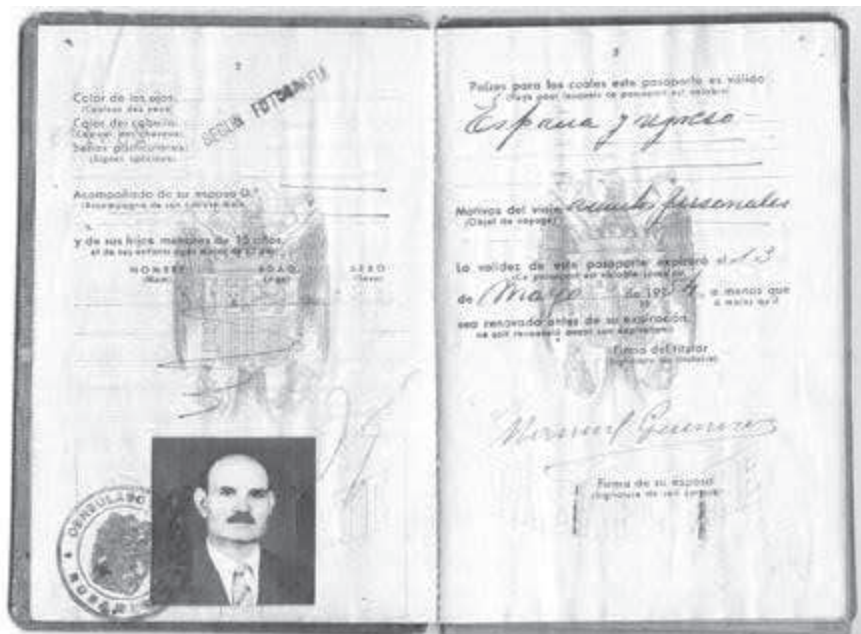 2
Color de los ojos:
(Couleur des yeux)
Color del cabello:
(Couleur des cheveux)
Señas particulares:
(Signes spéciaux)
SEGUN FOTOGRAFIA
Acompañado de su esposa D.ª
(Accompagné de son épouse Mme.
y de sus hijos menores de 15 años.
et de ses enfants âgés moins de 15 ans
NOMBRE EDAD SEXO
(Nom) (Age) (Sexe)
CONSULADO
3
Países para los cuales este pasaporte es válido
(Pays pour lesquels ce passeport est valable)
España y regreso
Motivos del viaje asuntos personales
(Objet du voyage)
La validez de este pasaporte expirará el 13
de Mayo de 1954, a menos que
à moins qu'il
sea renovado antes de su expiración.
ne soit renouvelé avant son expiration
Firma del titular
(Signature du titulaire)
Manuel
Firma de su esposa
(Signature de son épouse)